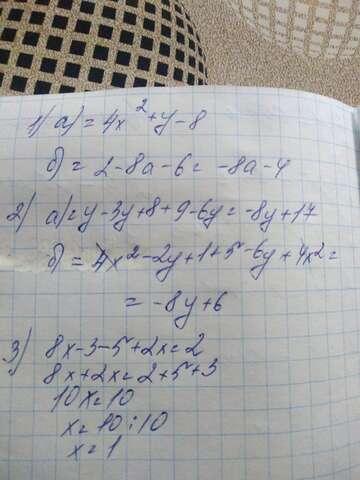 1) а) = 4x²+y-8
б) = 2-8a-6= -8a-4
2) а)=y-3y+8+9-6y=-8y+17
б) = 4x²-2y+1+5-6y+4x²=
= -8y+6
3) 8x-3-5+2x=2
8x+2x=2+5+3
10x=10
x=10:10
x=1